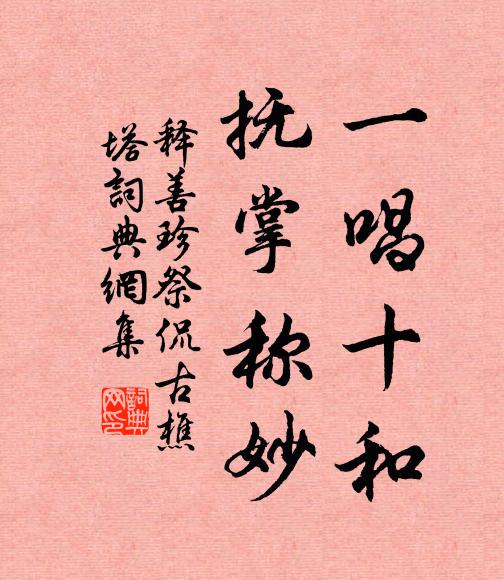 一唱十和
抚掌称妙
释善珍祭侃古樵
塔詞典網集
詞典
网印